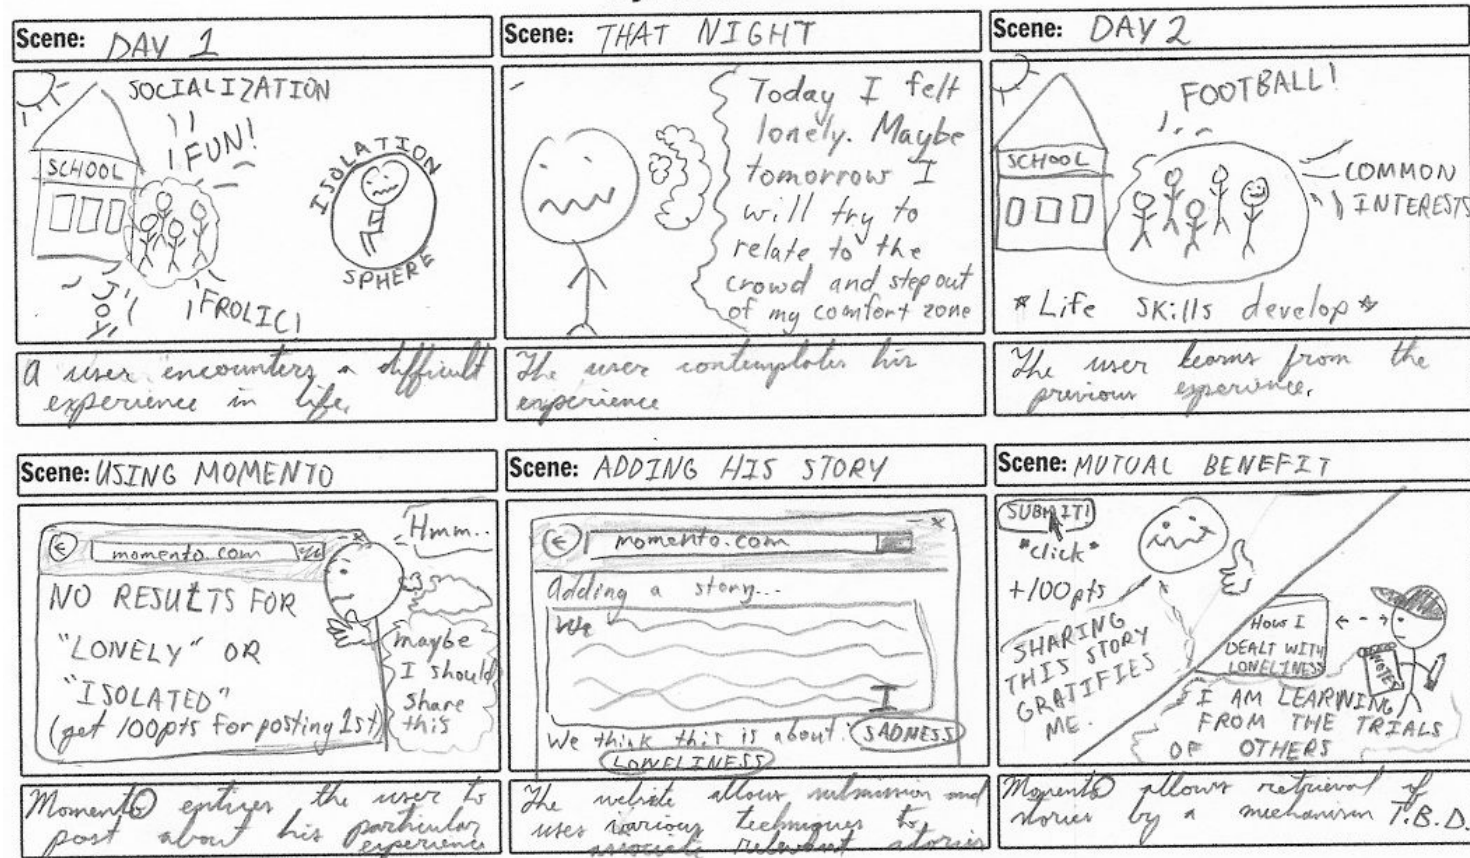 Scene: DAY 1
SOCIALIZATION
FUN!
SCHOOL
JOY!
FROLIC!
ISOLATION
SPHERE
A user encounters a difficult
experience in life.
Scene: THAT NIGHT
Today I felt
lonely. Maybe
tomorrow I
will try to
relate to the
crowd and step out
of my comfort zone
The user contemplates his
experience
Scene: DAY 2
FOOTBALL!
SCHOOL
COMMON
INTERESTS
*Life Skills develop*
The user learns from the
previous experience.
Scene: USING MOMENTO
momento.com
NO RESULTS FOR
"LONELY" OR
"ISOLATED"
(get 100pts for posting 1st)
Hmm..
maybe
I should
share
this
MomentO entices the user to
post about his particular
experience
Scene: ADDING HIS STORY
momento.com
Adding a story...
We
We think this is about: SADNESS
LONELINESS
The website allows submission and
uses various techniques to
associate relevant stories
Scene: MUTUAL BENEFIT
SUBMIT!
*click*
+100pts
SHARING
THIS STORY
GRATIFIES
ME.
How I
DEALT WITH
LONELINESS
NOTES
I AM LEARNING
FROM THE TRIALS
OF OTHERS
MomentO allows retrieval of
stories by a mechanism T.B.D.